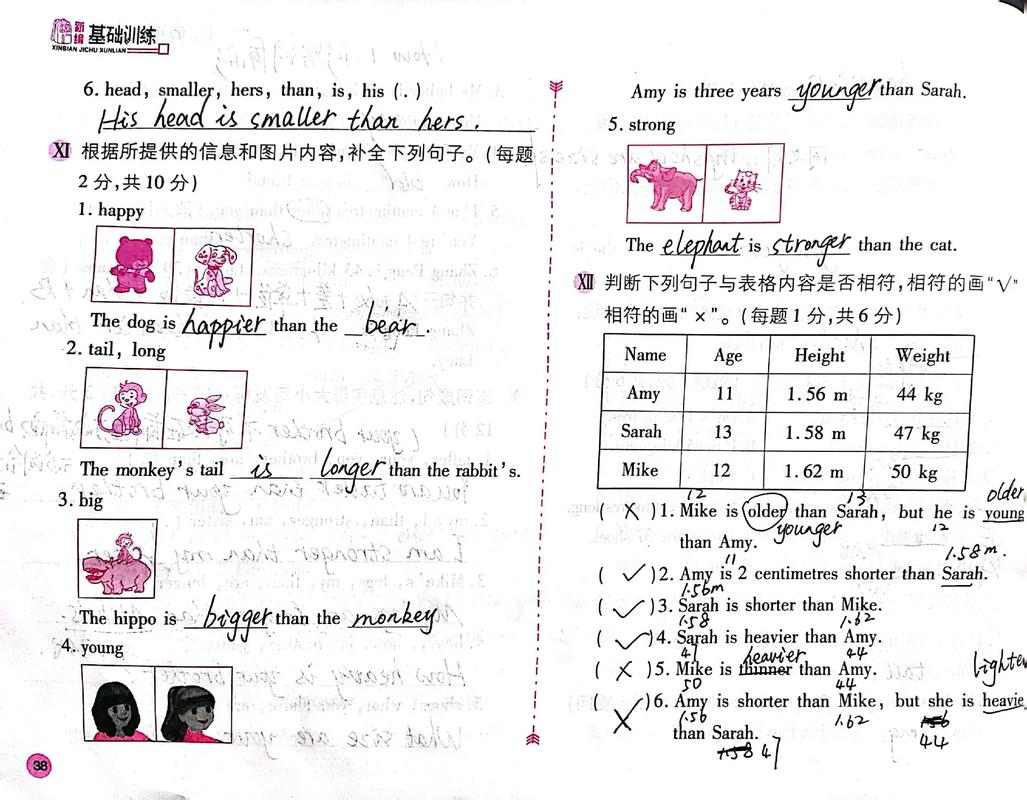 新编 基础训练
XINBIAN JICHU XUNLIAN
6. head, smaller, hers, than, is, his (.)
His head is smaller than hers.
Ⅺ 根据所提供的信息和图片内容,补全下列句子。(每题
2分,共10分)
1. happy
The dog is happier than the bear.
2. tail, long
The monkey's tail is longer than the rabbit's.
3. big
The hippo is bigger than the monkey
4. young
38
Amy is three years younger than Sarah.
5. strong
The elephant is stronger than the cat.
Ⅻ 判断下列句子与表格内容是否相符,相符的画"√"
相符的画"×"。(每题1分,共6分)
Name Age Height Weight
Amy 11 1.56 m 44 kg
Sarah 13 1.58 m 47 kg
Mike 12 1.62 m 50 kg
12 13 older
( × )1. Mike is older than Sarah, but he is young
younger 12
than Amy.
11 1.58m.
( √ )2. Amy is 2 centimetres shorter than Sarah.
1.56m
( √ )3. Sarah is shorter than Mike.
1.58 1.62
( √ )4. Sarah is heavier than Amy.
47 44
heavier
( × )5. Mike is thinner than Amy.
50 44 lighter
( × )6. Amy is shorter than Mike, but she is heavie
1.56 1.62 1.56
than Sarah. 44
1.58 47